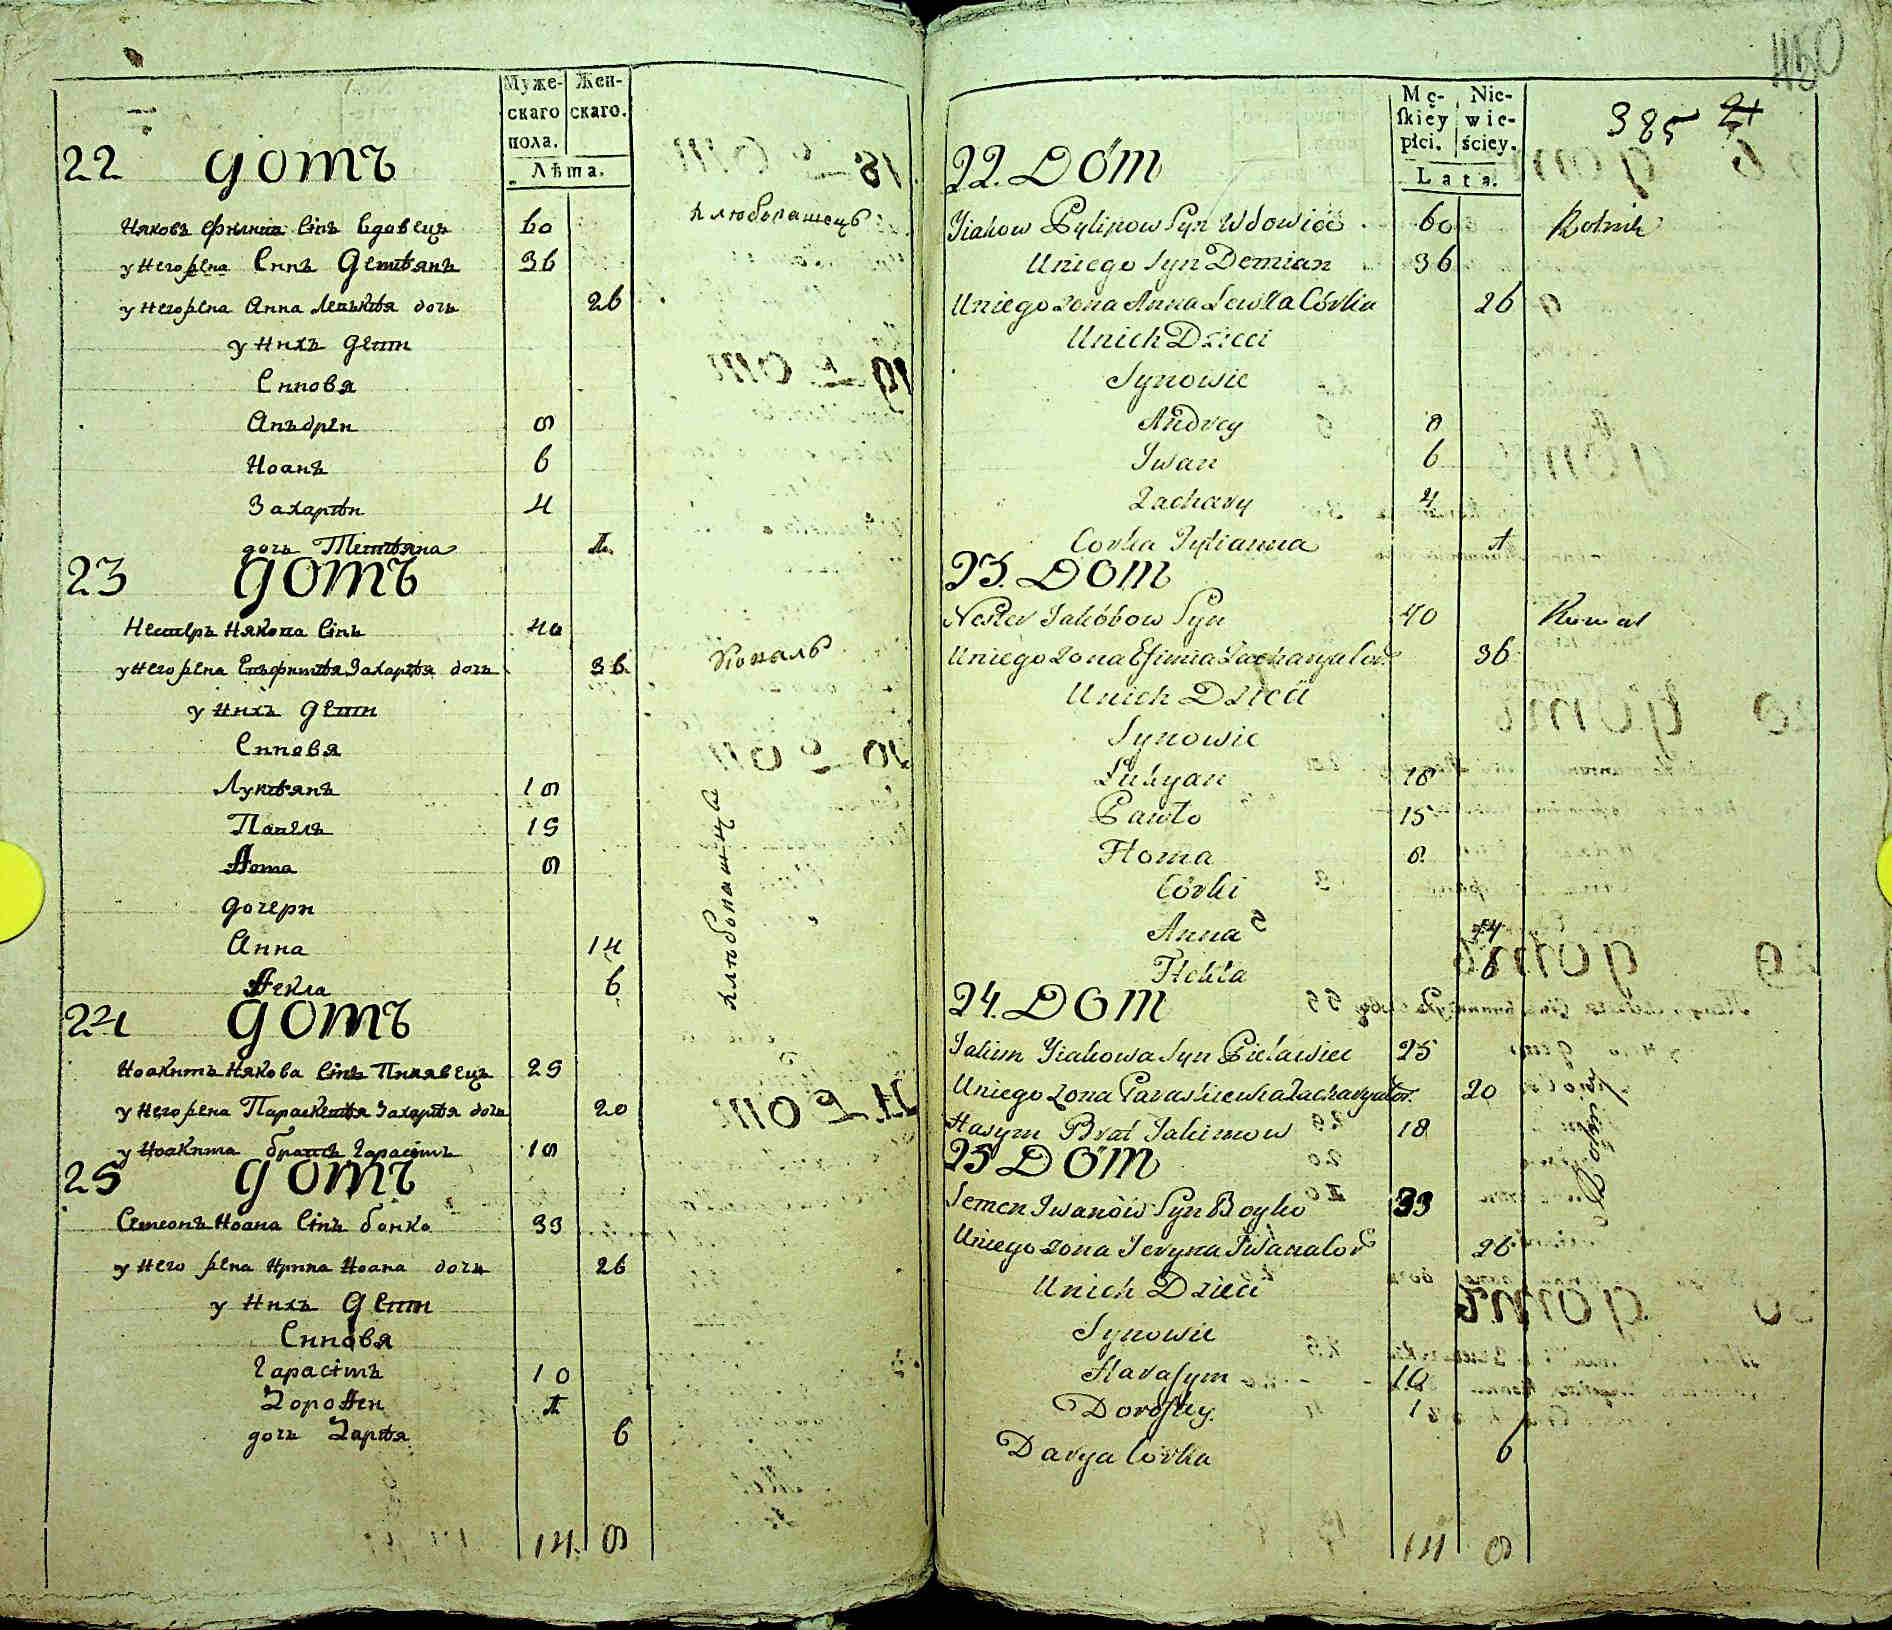 Муже-
скаго
пола.
Жен-
скаго.
Лѣта.
22 домъ
Ияковъ Филипа синъ вдовецъ 60
хлѣбопашецъ
у него Синъ Демѣянъ 36
у него жена Анна Левъкѣя дочь 26
у нихъ дети
Синовя
Анъдрей 8
Иоанъ 6
Захарѣй 4
дочь Тетѣяна 1
23 домъ
Нестеръ Иякова синъ 40
у него жена Евъфимѣя Захарѣя дочь 36
коваль
у нихъ дети
Синовя
Лукѣянъ 18
Павелъ 15
Ѳома 8
дочери
Анна 14
Ѳекла 6
хлѣбопашцы
24 домъ
Иоакимъ Иякова синъ Пилявецъ 25
у него жена Параскевѣя Захарѣя дочь 20
у Иоакима братъ Гарасімъ 18
25 домъ
Симеонъ Иоана Синъ Бойко 33
у него жена Ирина Иоана дочь 26
у нихъ дети
Синовя
Гарасімъ 10
Дороѳей 1
дочь Дарѣя 6
14. 8
Mę-
skiey
płci.
Nie-
wie-
ściey.
Lata.
385 21
22. Dóm
Jiakow Pylipow Syn Wdowiec 60 Rolnik
Uniego Syn Demian 36
Uniego żona Anna Lewka Córka 26
Unich Dzieci
Synowie
Andrey 8
Iwan 6
Zachary 4
Corka Tytianna 1
23. Dom
Nester Jakóbow Syn 40 Kowal
Uniego żona Efimia Zacharya Cor. 36
Unich Dzieci
Synowie
Lukyan 18
Pawło 15
Homa 8
Córki
Anna 14
Hekla 6
24. Dom
Jakim Jiakowa Syn Pielawiec 25
Uniego żona Paraskiewia Zacharya Cor. 20
Hasym Brat Jakimow 18
25 Dóm
Semen Iwanów Syn Boyko 33
Uniego żona Jeryna Iwana Cor 26
Unich Dzieci
Synowie
Harasym 10
Dorofiey 1
Darya Córka 6
14 8